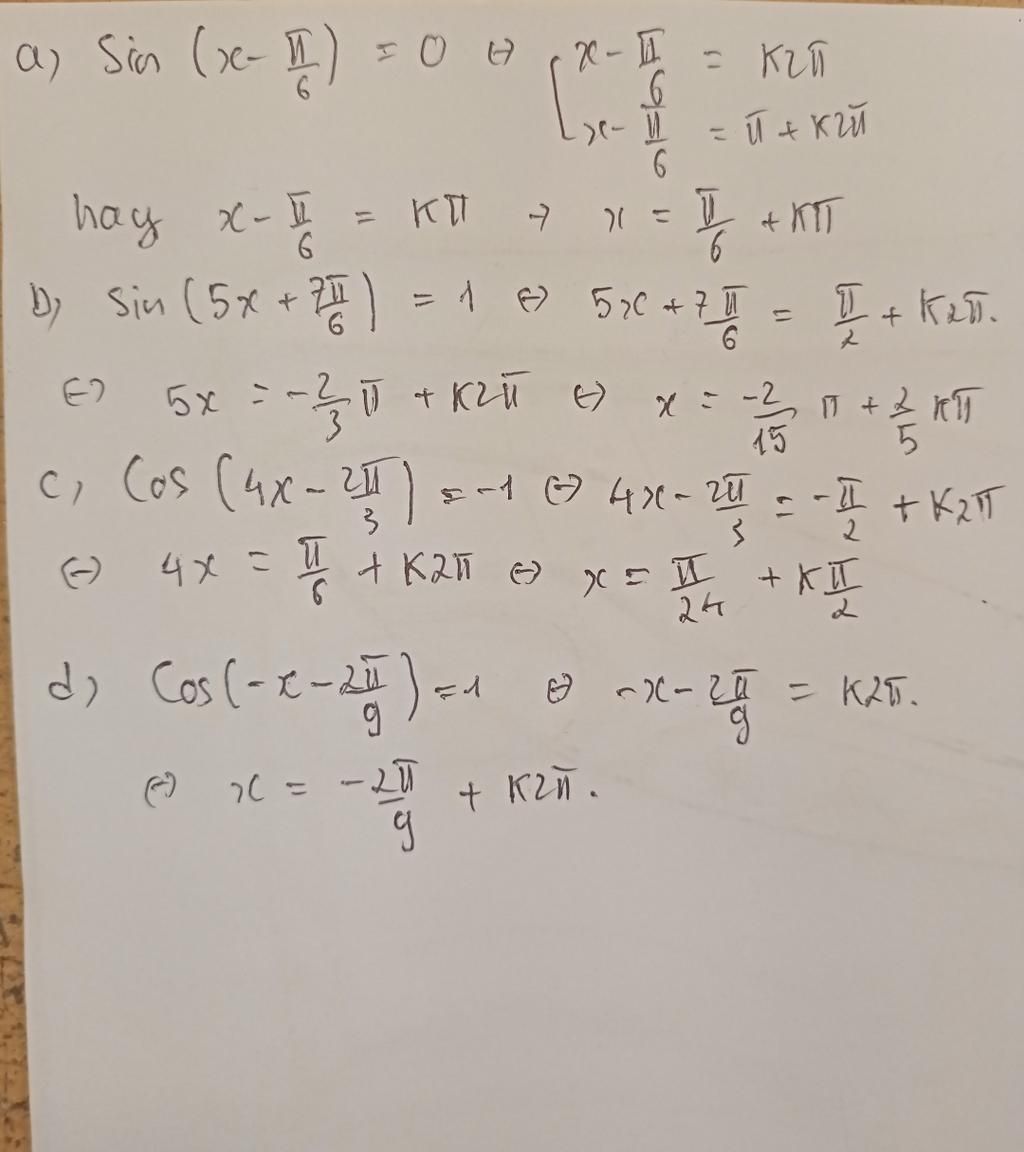 a, Sin (x - π/6) = 0 ⇔ [ x - π/6 = K2π
x - π/6 = π + K2π
hay x - π/6 = Kπ → x = π/6 + Kπ
b, Sin (5x + 7π/6) = 1 ⇔ 5x + 7π/6 = π/2 + K2π.
⇔ 5x = -2/3 π + K2π ⇔ x = -2/15 π + 2/5 Kπ
c, Cos (4x - 2π/3) = -1 ⇔ 4x - 2π/3 = -π/2 + K2π
⇔ 4x = π/6 + K2π ⇔ x = π/24 + K π/2
d, Cos (-x - 2π/9) = 1 ⇔ -x - 2π/9 = K2π.
⇔ x = -2π/9 + K2π.